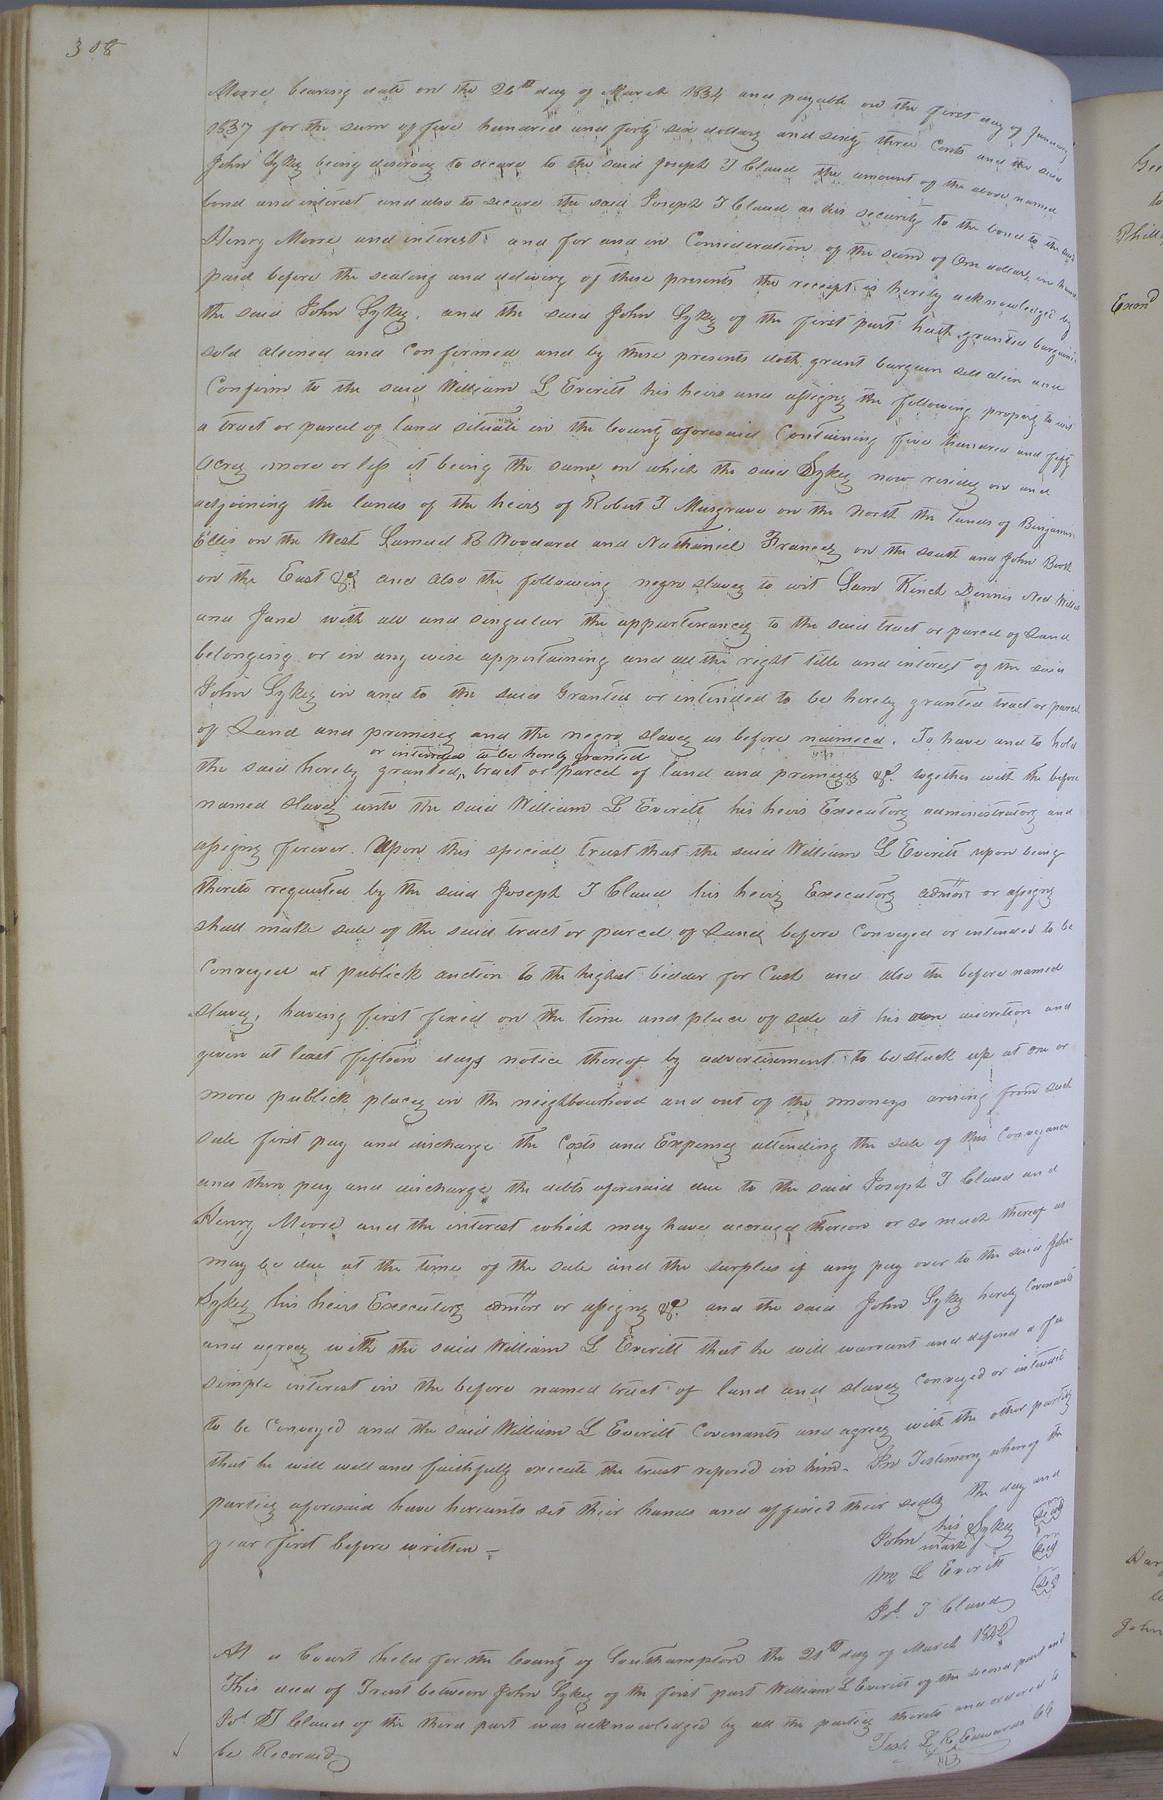 308
Moore bearing date on the 26th day of March 1834 and payable on the first day of January
1837 for the sum of five hundred and forty six dollars and sixty three Cents and the said
John Sykes being desirous to secure to the said Joseph T Claud the amount of the above named
bond and interest and also to secure the said Joseph T Claud as his security to the bond to the said
Henry Moore and interest and for and in Consideration of the sum of One dollar in hand
paid before the sealing and delivery of these presents the receipt is hereby acknowledged by
the said John Sykes, and the said John Sykes of the first part hath granted bargained
sold aliened and Confirmed and by these presents doth grant bargain sell alien and
Confirm to the said William L Everitt his heirs and assigns the following property to wit
a tract or parcel of land situate in the County aforesaid Containing five hundred and fifty
acres more or less it being the same on which the said Sykes now resides on and
adjoining the lands of the heirs of Robert T Musgrave on the North the lands of Benjamin
Ellis on the West Samuel B Woodard and Nathaniel Francis on the south and John Booth
on the East &c. and also the following negro slaves to wit Sam Kinch Dennis Ned Willis
and Jane with all and singular the appurtenances to the said tract or parcel of Land
belonging or in any wise appertaining and all the right title and interest of the said
John Sykes in and to the said Granted or intended to be hereby granted tract or parcel
of Land and premises and the negro slaves as before naimeed. To have and to hold
or intended to be hereby granted
the said hereby granted, tract or parcel of land and premises &c. together with the before
named slaves unto the said William L Everitt his heirs Executors administrators and
assigns forever. Upon this special trust that the said William L Everitt upon being
thereto requested by the said Joseph T Claud his heirs Executors admors or assigns
shall make sale of the said tract or parcel of Land before Conveyed or intended to be
Conveyed at publick auction to the highest bidder for Cash and also the before named
slaves, having first fixed on the time and place of sale at his own discretion and
given at least fifteen days notice thereof by advertisement to be stuck up at one or
more publick places in the neighbourhood and out of the moneys arising from such
sale first pay and discharge the Costs and Expenses attending the sale of this Conveyance
and then pay and discharge the debts aforesaid due to the said Joseph T Claud and
Henry Moore and the interest which may have accrued thereon or so much thereof as
may be due at the time of the sale and the surplus if any pay over to the said John
Sykes his heirs Executors admors or assigns &c. and the said John Sykes hereby Covenants
and agrees with the said William L Everitt that he will warrant and defend a fee
simple interest in the before named tract of land and slaves Conveyed or intended
to be Conveyed and the said William L Everitt Covenants and agrees with the other parties
that he will well and faithfully execute the trust reposed in him - In Testimony whereof the
parties aforesaid have hereunto set their hands and affixed their seals the day and
year first before written -
John his mark Sykes Seal
Wm L Everitt Seal
Jos. T Claud Seal
At a Court held for the County of Southampton the 21st day of March 1842
This deed of Trust between John Sykes of the first part William L Everitt of the second part and
Jos T Claud of the third part was acknowledged by all the parties thereto and ordered to
be Recorded
Teste L R Edwards Clk